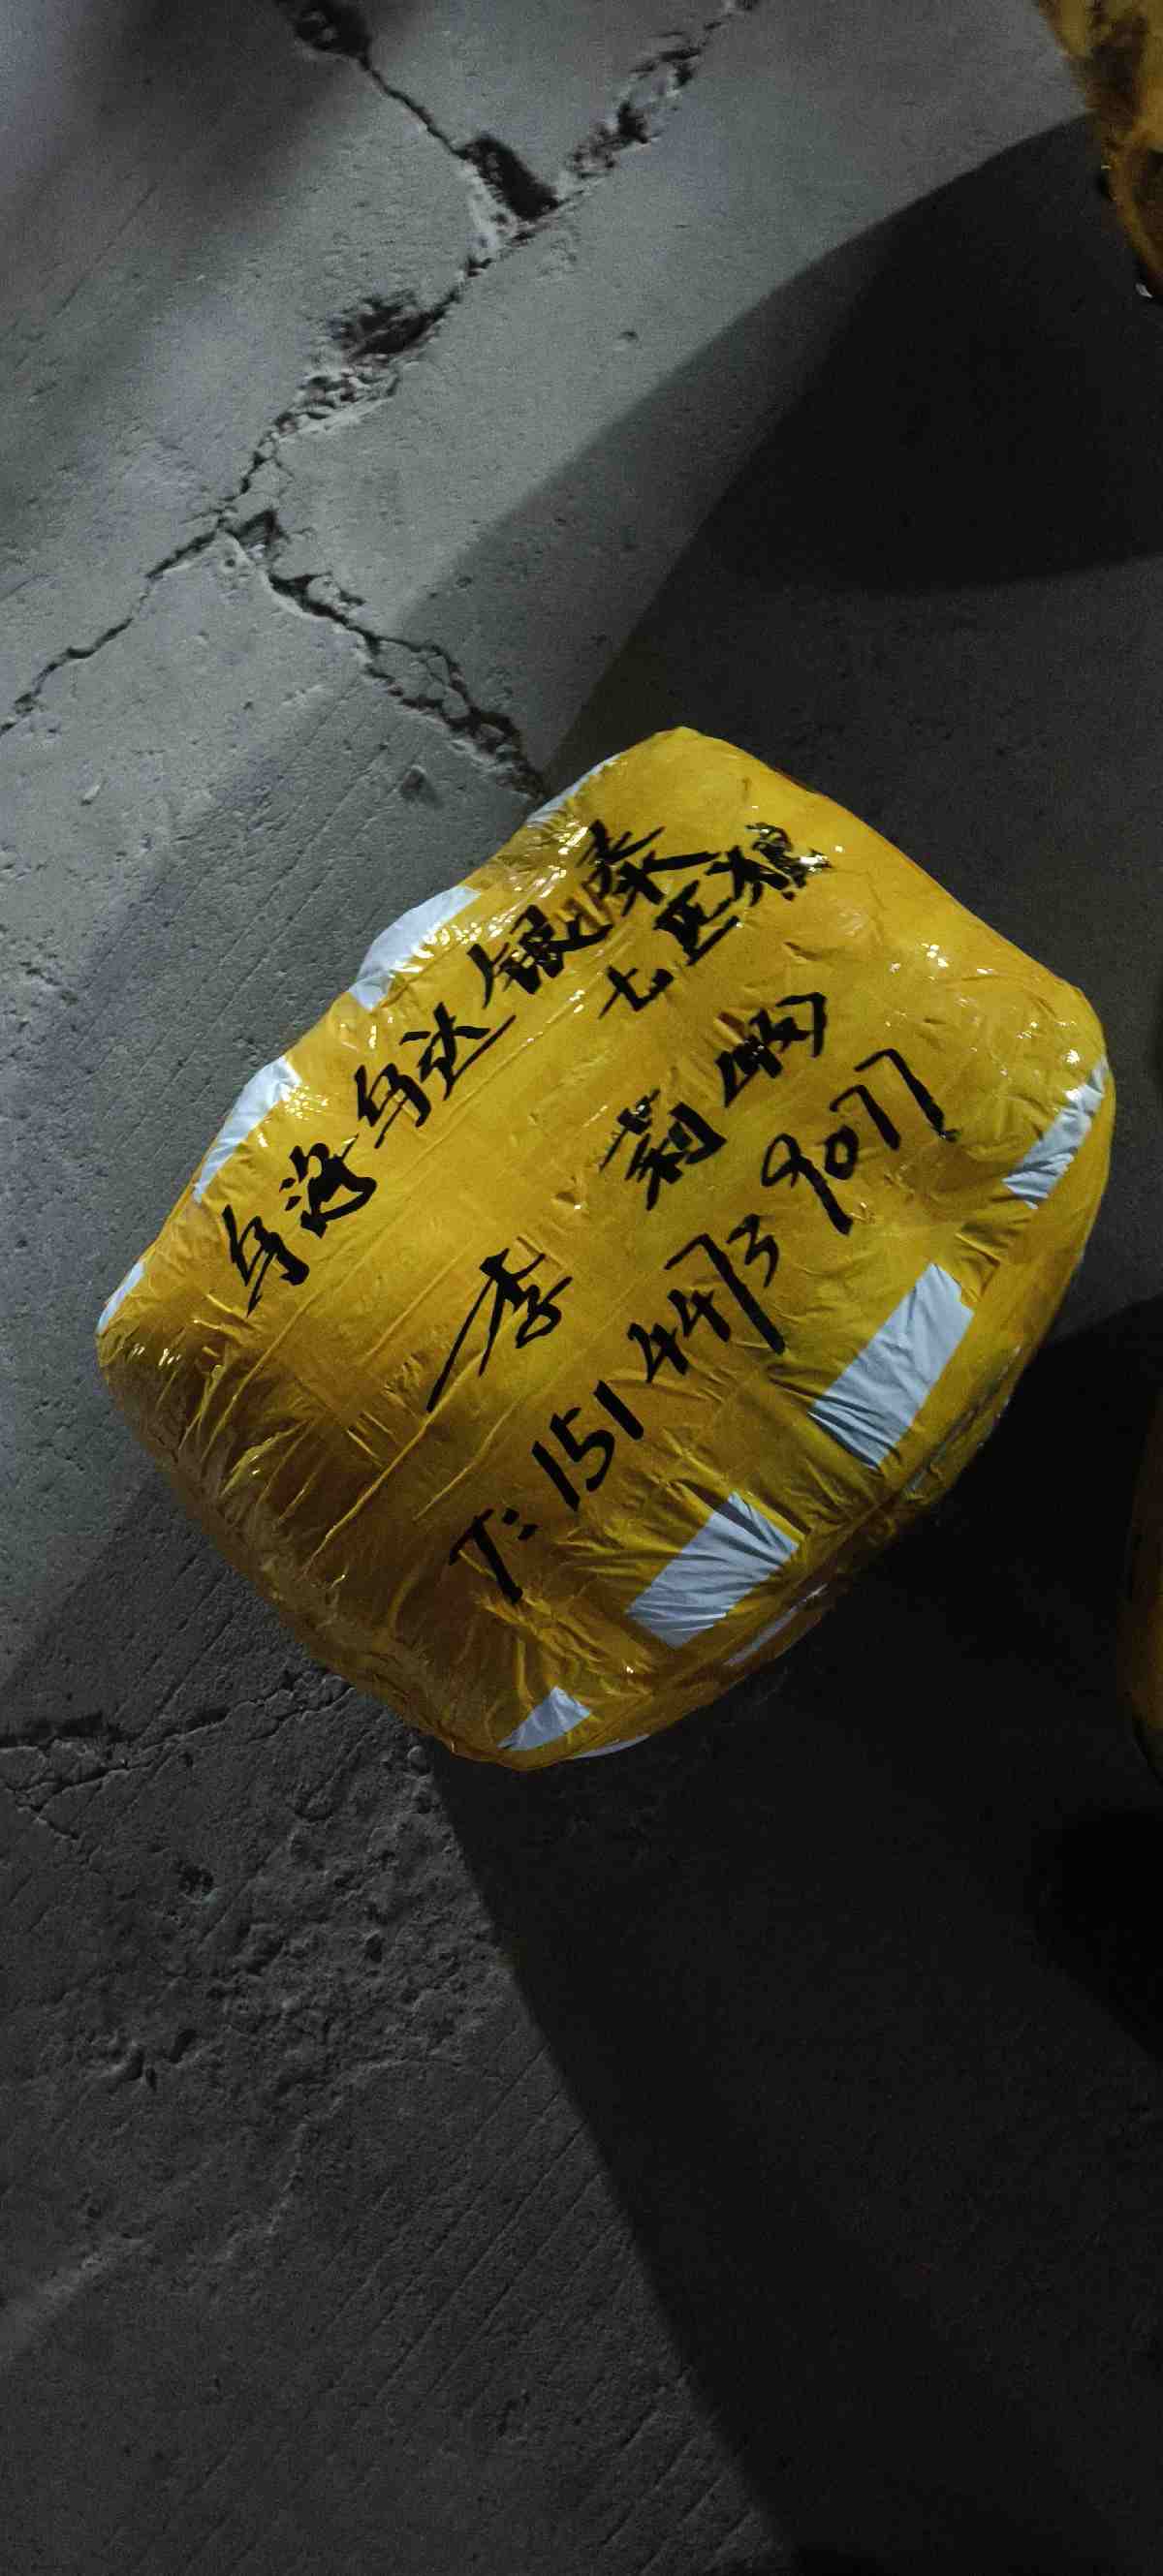 乌海乌达银泰
七匹狼
李莉娴
T: 151 4473 9077